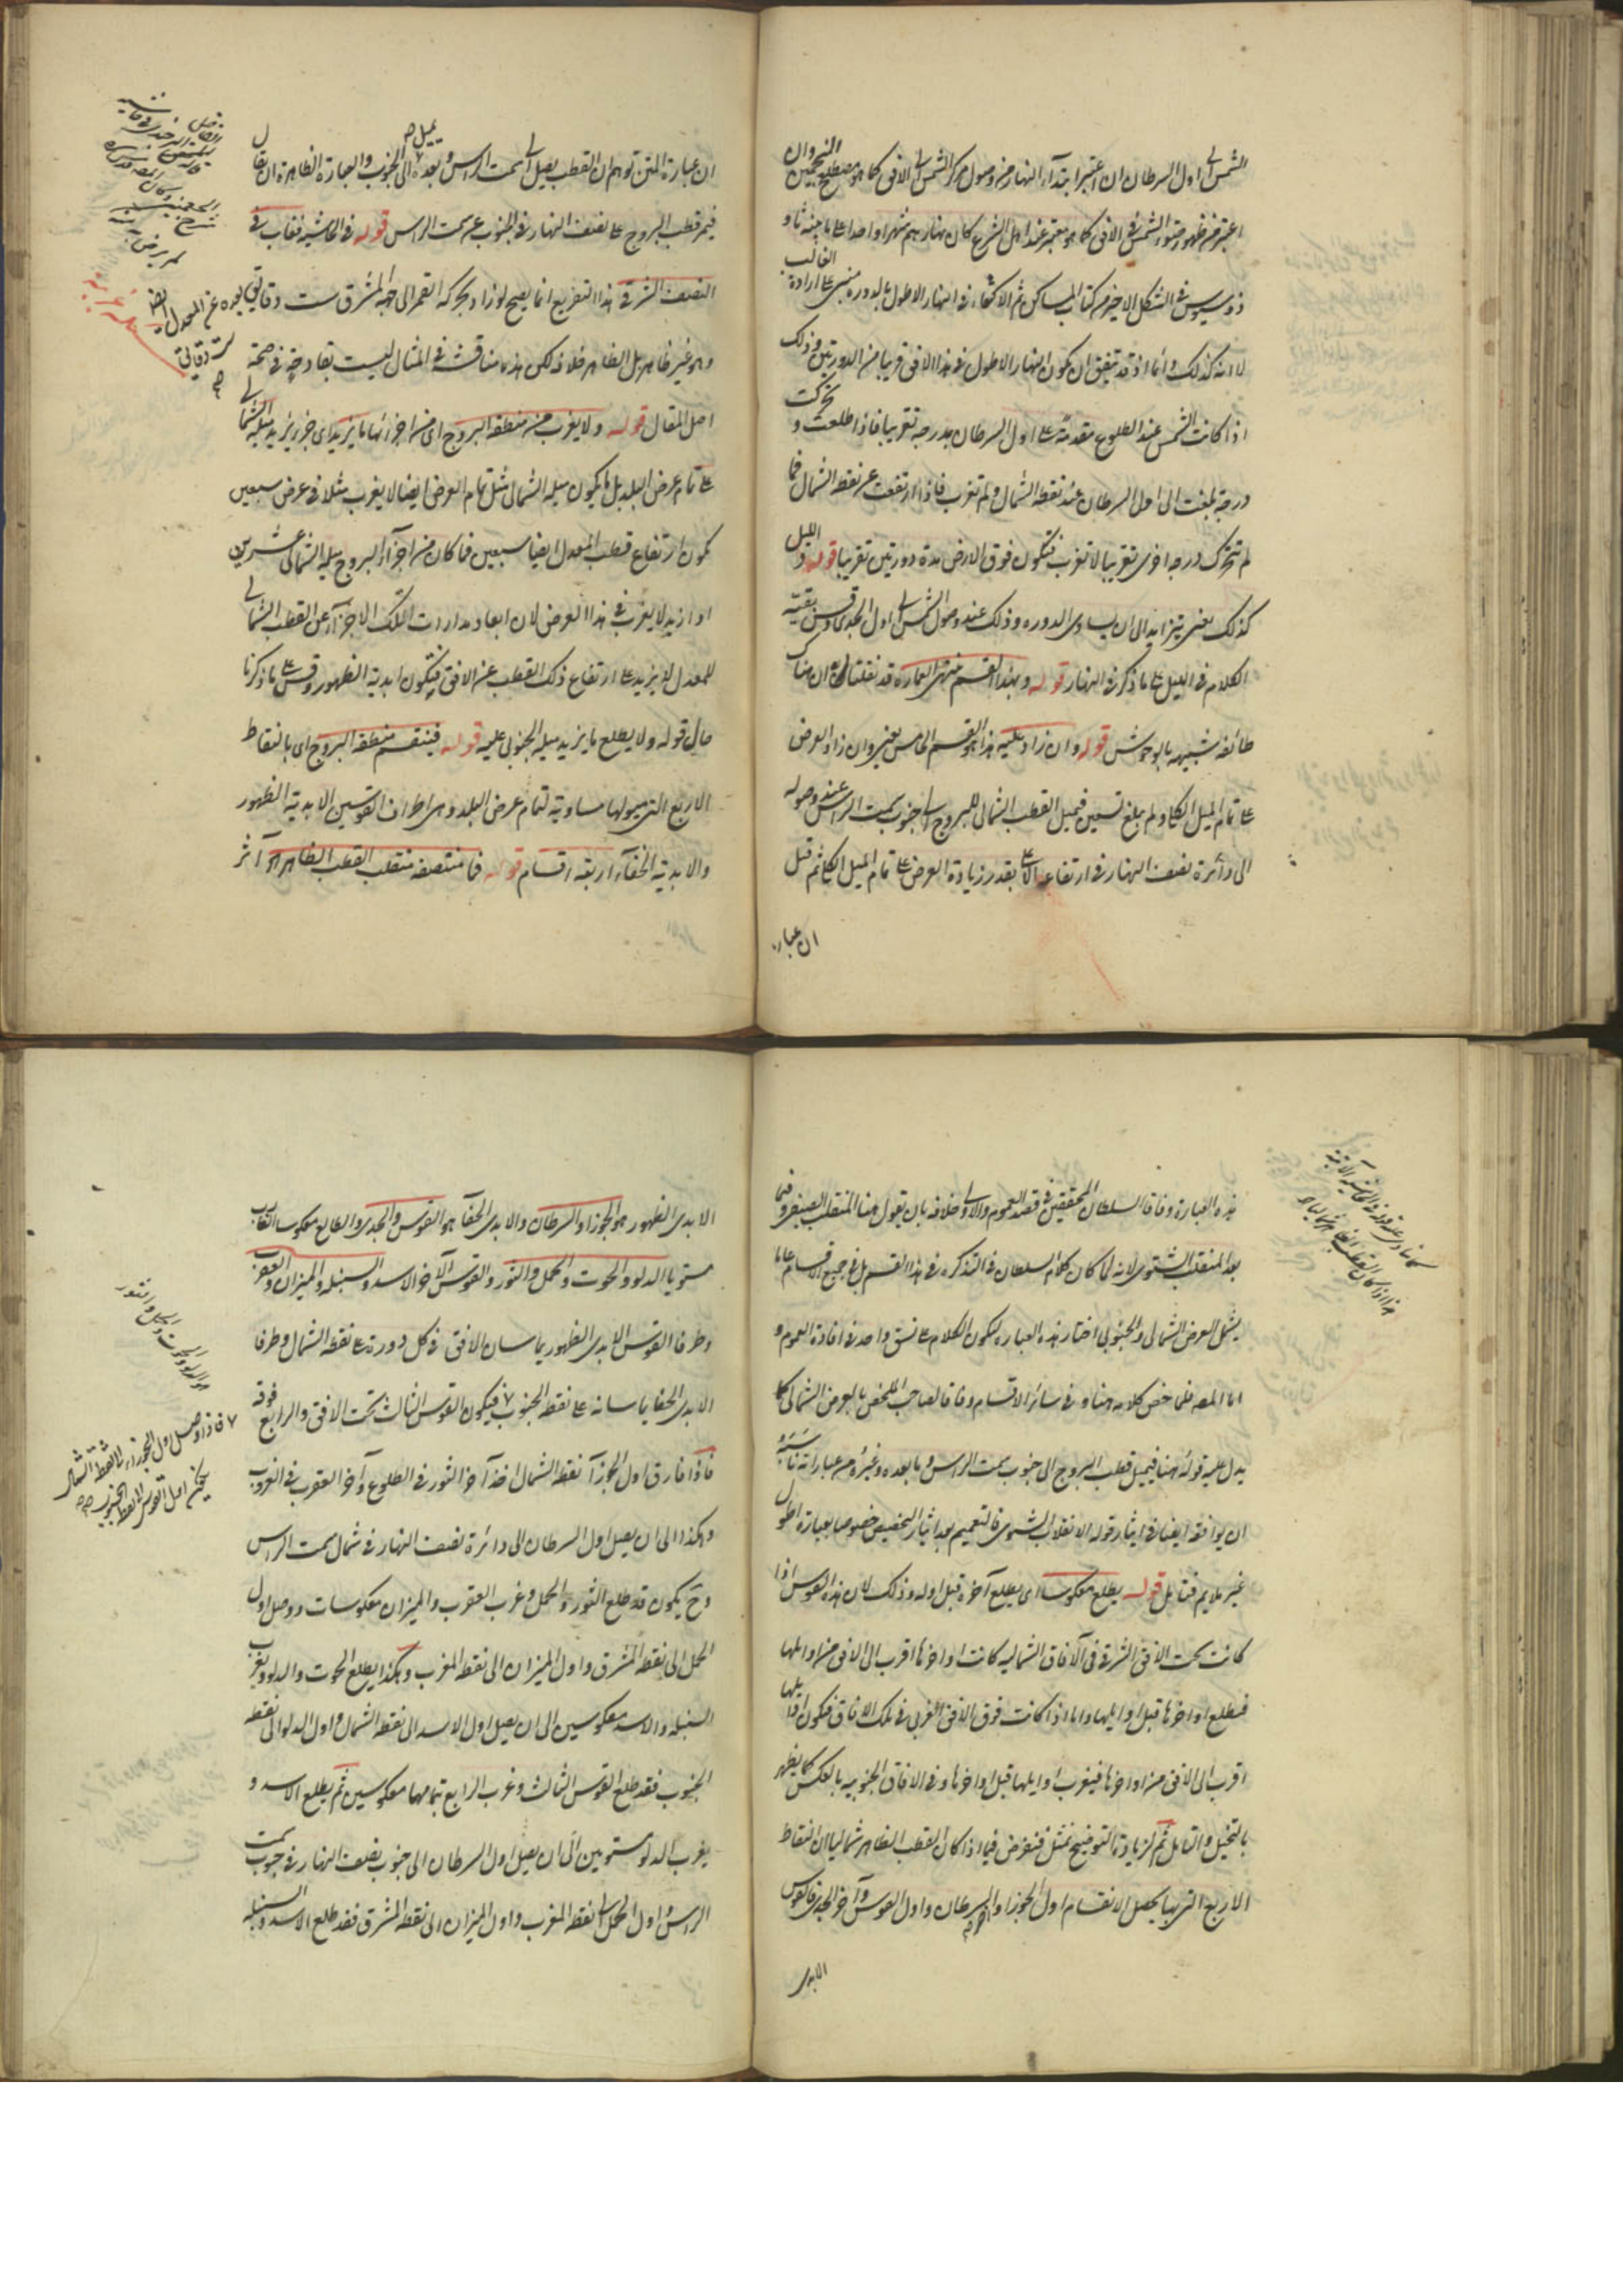 الشمس الى اول السرطان ان اعتبر ابتداء النهار من وصول مركز الشمس الى الافق كما هو مصطلح المنجمين وان
اعتبر من ظهور ضوء الشمس فى الافق كما هو معتبر عند اهل الشرع كان نهارهم شهرا واحدا على ما بينه ثاو
ذوسيوس فى الشكل الاخير من كتاب المساكن ثم الاكتفاء فى النهار الاطول بالدورة مبنى على ارادة الغالب
لا انه كذلك دائما اذ قد يتفق ان يكون النهار الاطول فى هذا الافق قريبا من الدورتين وذلك
اذا كانت الشمس عند الطلوع متقدمة على اول السرطان بدرجة تقريبا فاذا طلعت و تحركت
درجة بلغت الى اول السرطان عند نقطة الشمال ولم تغرب فاذا ارتفعت عن نقطة الشمال فما
لم تتحرك درجة اخرى تقريبا لا تغرب فتكون فوق الارض مدة دورتين تقريبا قوله و الليل
كذلك يعنى يتزايد الى ان يساوى الدورة وذلك عند وصول الشمس الى اول الجدى وقس بقية
الكلام فى الليل على ما ذكر فى النهار قوله وبهذا القسم منتهى العمارة قد نقلنا ان هناك
طائفة شبيهة بالوحوش قوله وان زاد عليه هذا هو القسم الخامس يعنى وان زاد العرض
على تمام الميل الكلى ولم يبلغ تسعين فيميل القطب الشمالى للبروج الى جنوب سمت الراس عند وصوله
الى دائرة نصف النهار فى ارتفاعه الاعلى بقدر زيادة العرض على تمام الميل الكلى ثم قيل
ان عبارة
ان عبارة المتن توهم ان القطب يصل الى سمت الراس وبعده يميل الى الجنوب والعبارة الظاهرة ان يقال
فيمر قطب البروج على نصف النهار فى الجنوب عن سمت الراس قوله فى الحاشية فغاب فى
النصف الشرقى هذا التفريع انما يصح لو زاد بحركة القمر الى جهة المشرق ست دقايق بعده عن المعدل
وهو غير ظاهر بل الظاهر خلاف ذلك لكن هذه مناقشة فى المثال ليست بقادحة فى صحة
اصل المقال قوله ولا يغرب من منطقة البروج اى من اجزائها ما يزيد اى جزء يزيد ميله الشمالى
على تمام عرض البلد بل ما يكون ميله الشمالى مثل تمام العرض ايضا لا يغرب مثلا فى عرض سبعين
يكون ارتفاع قطب المعدل ايضا سبعين فما كان من اجزاء البروج ميله الشمالى عشرين
او ازيد لا يغرب فى هذا العرض لان ابعاد مدارات تلك الاجزاء عن القطب الشمالى
للمعدل لا يزيد على ارتفاع ذلك القطب عن الافق فتكون ابدية الظهور وقس على ما ذكرنا
حال قوله ولا يطلع ما يزيد ميله الجنوبى عليه قوله فينقسم منطقة البروج اى بالنقاط
الاربع التى ميولها مساوية لتمام عرض البلد وهى اطراف القوسين الابدية الظهور
والابدية الخفاء اربعة اقسام قوله فما منتصفه منقلب القطب الظاهر آثر
هذه العبارة وفاقا لسلطان المحققين فى قصد العموم والاولى خلافه بان يقول هنا المنقلب الصيفى وفيما
بعد المنقلب الشتوى لانه لما كان كلام السلطان فى التذكرة فى هذا القسم بل فى جميع الاقسام عاما
يشمل العرض الشمالى والجنوبى اختار هذه العبارة ليكون الكلام على نسق واحد فى افادة العموم و
اما المصه فلما خص كلامه هنا و فى سائر الاقسام وفاقا لصاحب الملخص بالعرض الشمالى كما
يدل عليه قوله هنا فيميل قطب البروج الى جنوب سمت الراس وما بعده وغيره من عباراته ناسبه
ان يوافقه ايضا فى ايثار قوله الانقلاب الشتوى فالتعميم بعد ايثار التخصيص خصوصا بعبارة اطول
غير ملايم فتامل قوله يطلع معكوسا اى يطلع آخره قبل اوله وذلك لان هذا القوس اذا
كانت تحت الافق الشرقى فى الآفاق الشمالية كانت اواخرها اقرب الى الافق من اوايلها
فيطلع اواخرها قبل اوايلها واما اذا كانت فوق الافق الغربى فى تلك الافاق فيكون اوايلها
اقرب الى الافق من اواخرها فيغرب اوايلها قبل اواخرها و فى الافاق الجنوبية بالعكس كما يظهر
بالتخيل والتامل ثم لزيادة التوضيح نمثل فنفرض فيما اذا كان القطب الظاهر شماليا ان النقاط
الاربع التى بها يحصل الانقسام اول الجوزا وآخر السرطان واول القوس وآخر الجدى فالقوس
الابدى
الابدى الظهور هو الجوزا والسرطان والابدى الخفا هو القوس والجدى والطالع معكوسا الغارب
مستويا الدلو والحوت والحمل والثور والقوس الآخر الاسد والسنبلة والميزان والعقرب
وطرفا القوس الابدى الظهور يماسان الافق فى كل دورة على نقطة الشمال وطرفا
الابدى الخفا يماسانه على نقطة الجنوب فيكون القوس الثالث تحت الافق والرابع فوقه
فاذا فارق اول الجوزآ نقطة الشمال اخذ آخر الثور فى الطلوع وآخر العقرب فى الغروب
وهكذا الى ان يصل اول السرطان الى دائرة نصف النهار فى شمال سمت الراس
وح يكون قد طلع الثور والحمل وغرب العقرب والميزان معكوسات ووصل اول
الحمل الى نقطة المشرق واول الميزان الى نقطة المغرب وهكذا يطلع الحوت والدلو ويغرب
السنبلة والاسد معكوسين الى ان يصل اول الاسد الى نقطة الشمال واول الدلو الى نقطة
الجنوب فقد طلع القوس الثالث وغرب الرابع بتمامهما معكوسين ثم يطلع الاسد و
يغرب الدلو مستويين الى ان يصل اول السرطان الى جنوب نصف النهار فى جنوب سمت
الراس واول الحمل الى نقطة المغرب واول الميزان الى نقطة المشرق فقد طلع الاسد والسنبلة
هو الدلو والحوت والحمل والثور
فاذا وصل اول الجوزاء الى نقطة الشمال